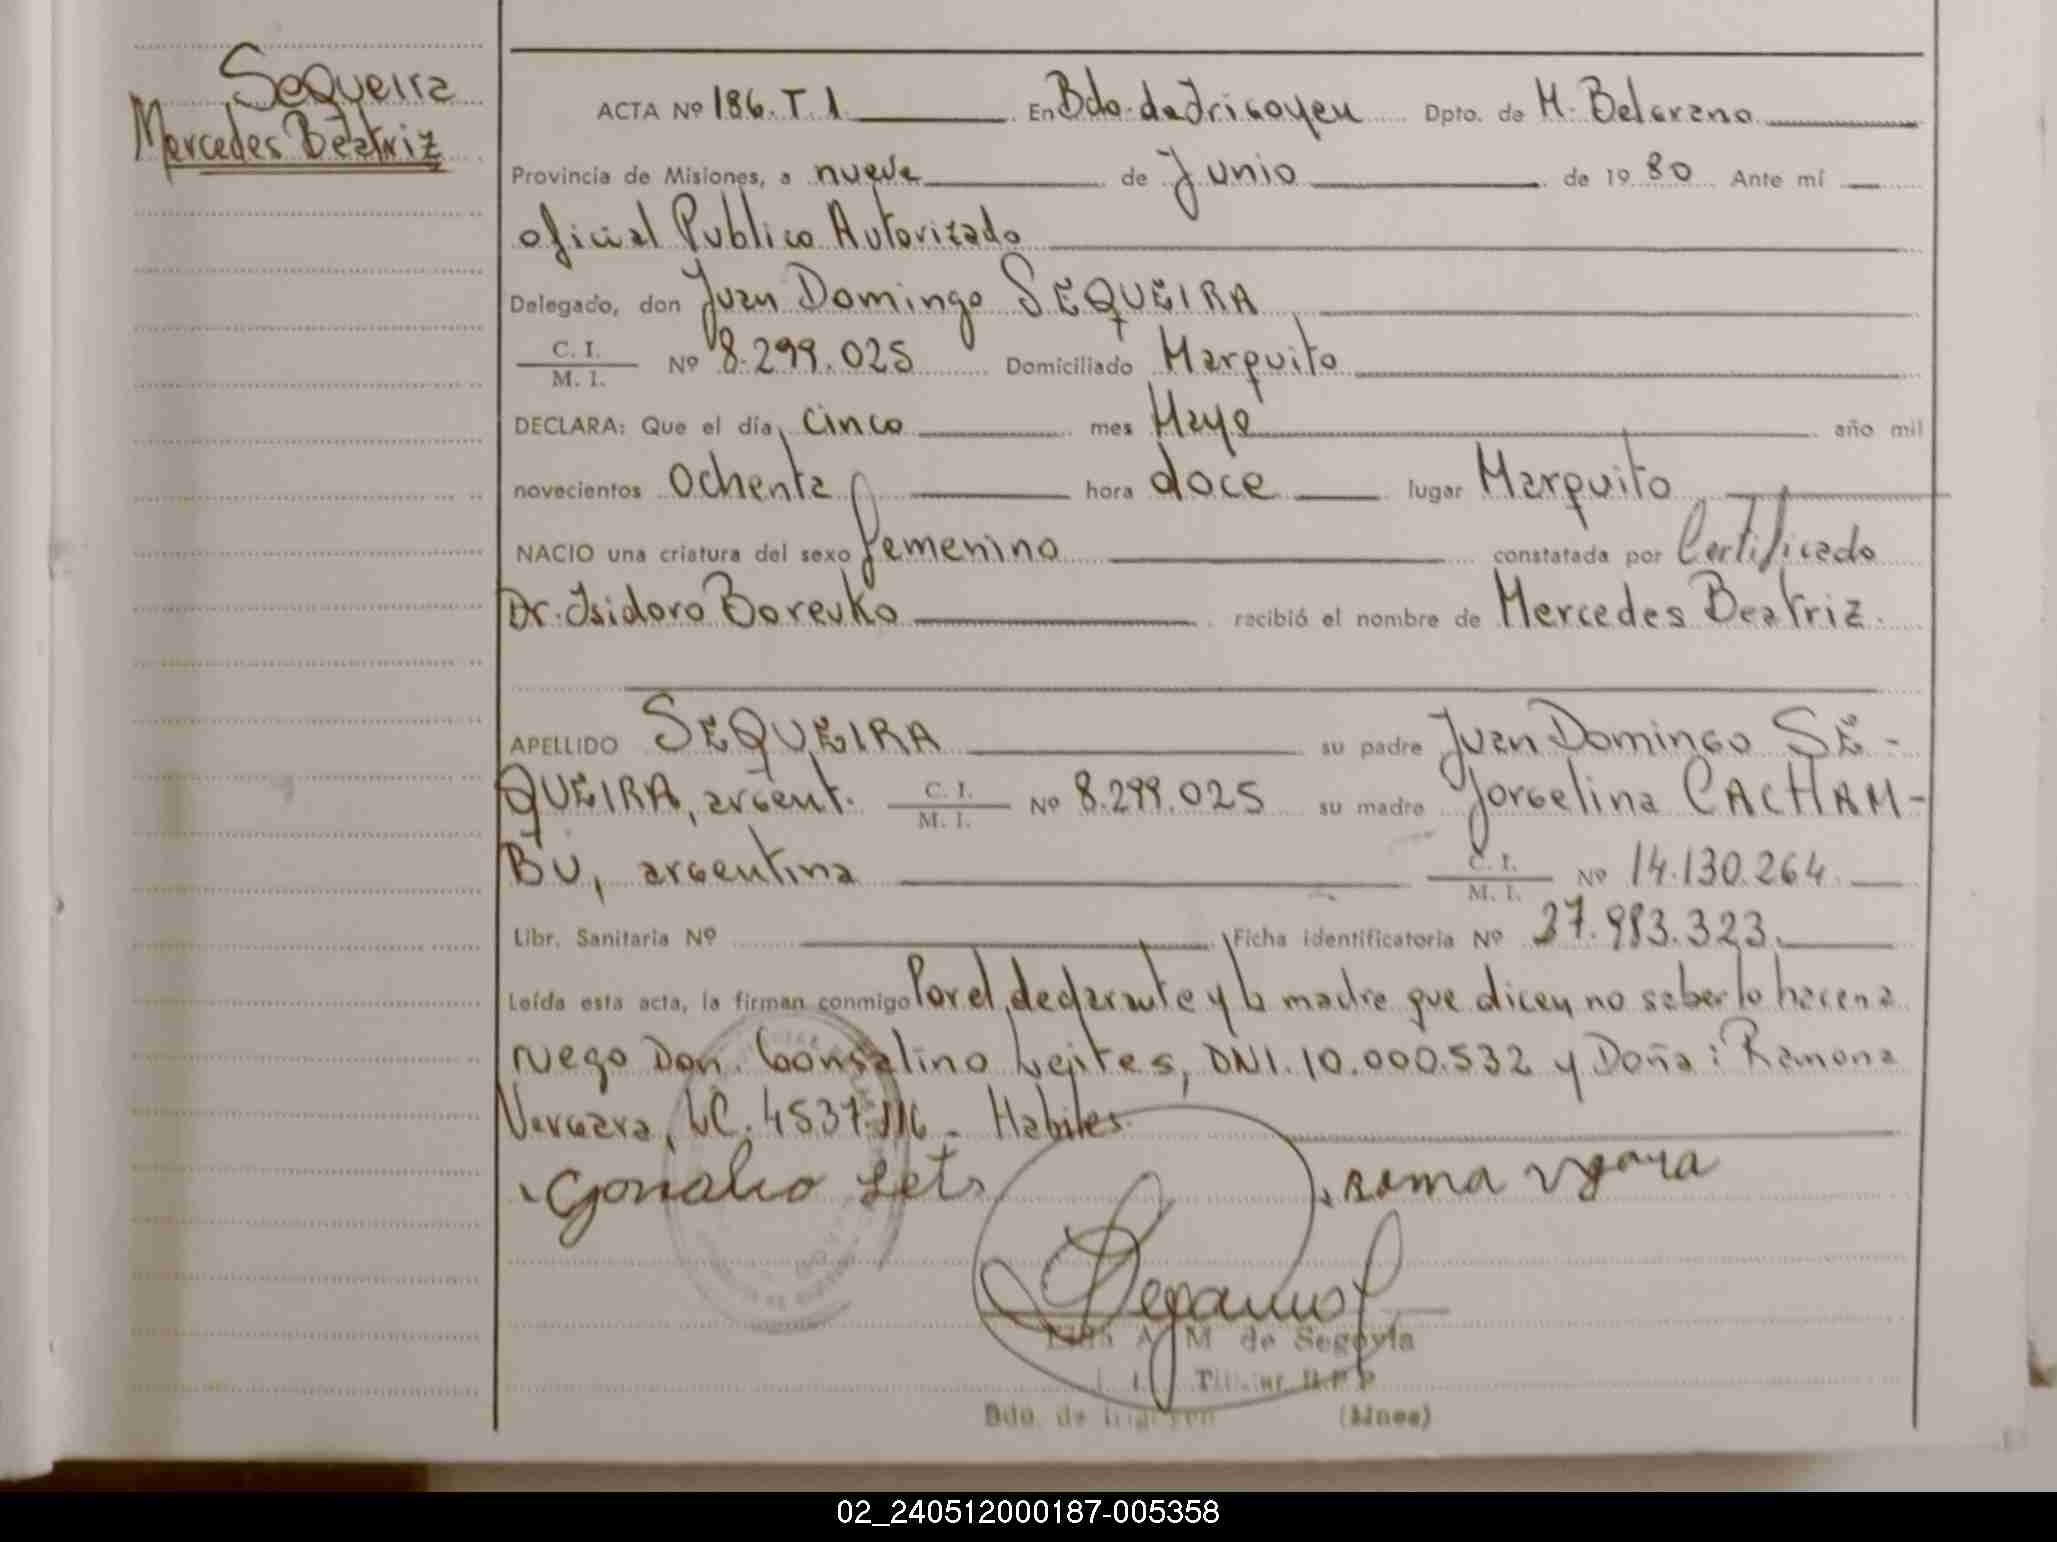 Sequeira
Mercedes Beatriz
ACTA Nº 186. T. 1 En Bdo. de Irigoyen Dpto. de M. Belgrano
Provincia de Misiones, a nueve de Junio de 1980 Ante mí
oficial Publico Autorizado
Delegado, don Juan Domingo SEQUEIRA
C. I. / M. I. Nº 8.299.025 Domiciliado Marquito
DECLARA: Que el día cinco mes Mayo año mil
novecientos ochenta hora doce lugar Marquito
NACIO una criatura del sexo femenino constatada por Certificado
Dr. Isidoro Borevko recibió el nombre de Mercedes Beatriz.
APELLIDO SEQUEIRA su padre Juan Domingo SE-
QUEIRA, argent. C. I. / M. I. Nº 8.299.025 su madre Jorgelina CACHAM-
BU, argentina C. I. / M. I. Nº 14.130.264
Libr. Sanitaria Nº Ficha identificatoria Nº 27.983.323
Leída esta acta, la firman conmigo Por el declarante y la madre que dicen no saberlo hacen a
ruego Don. Gonsalino Leites, DNI. 10.000.532 y Doña: Ramona
Vergara, LC. 4537.116 - Habiles.
A. M de Segovia
Titular
Bdo. de Irigoyen (Mnes)
02_240512000187-005358